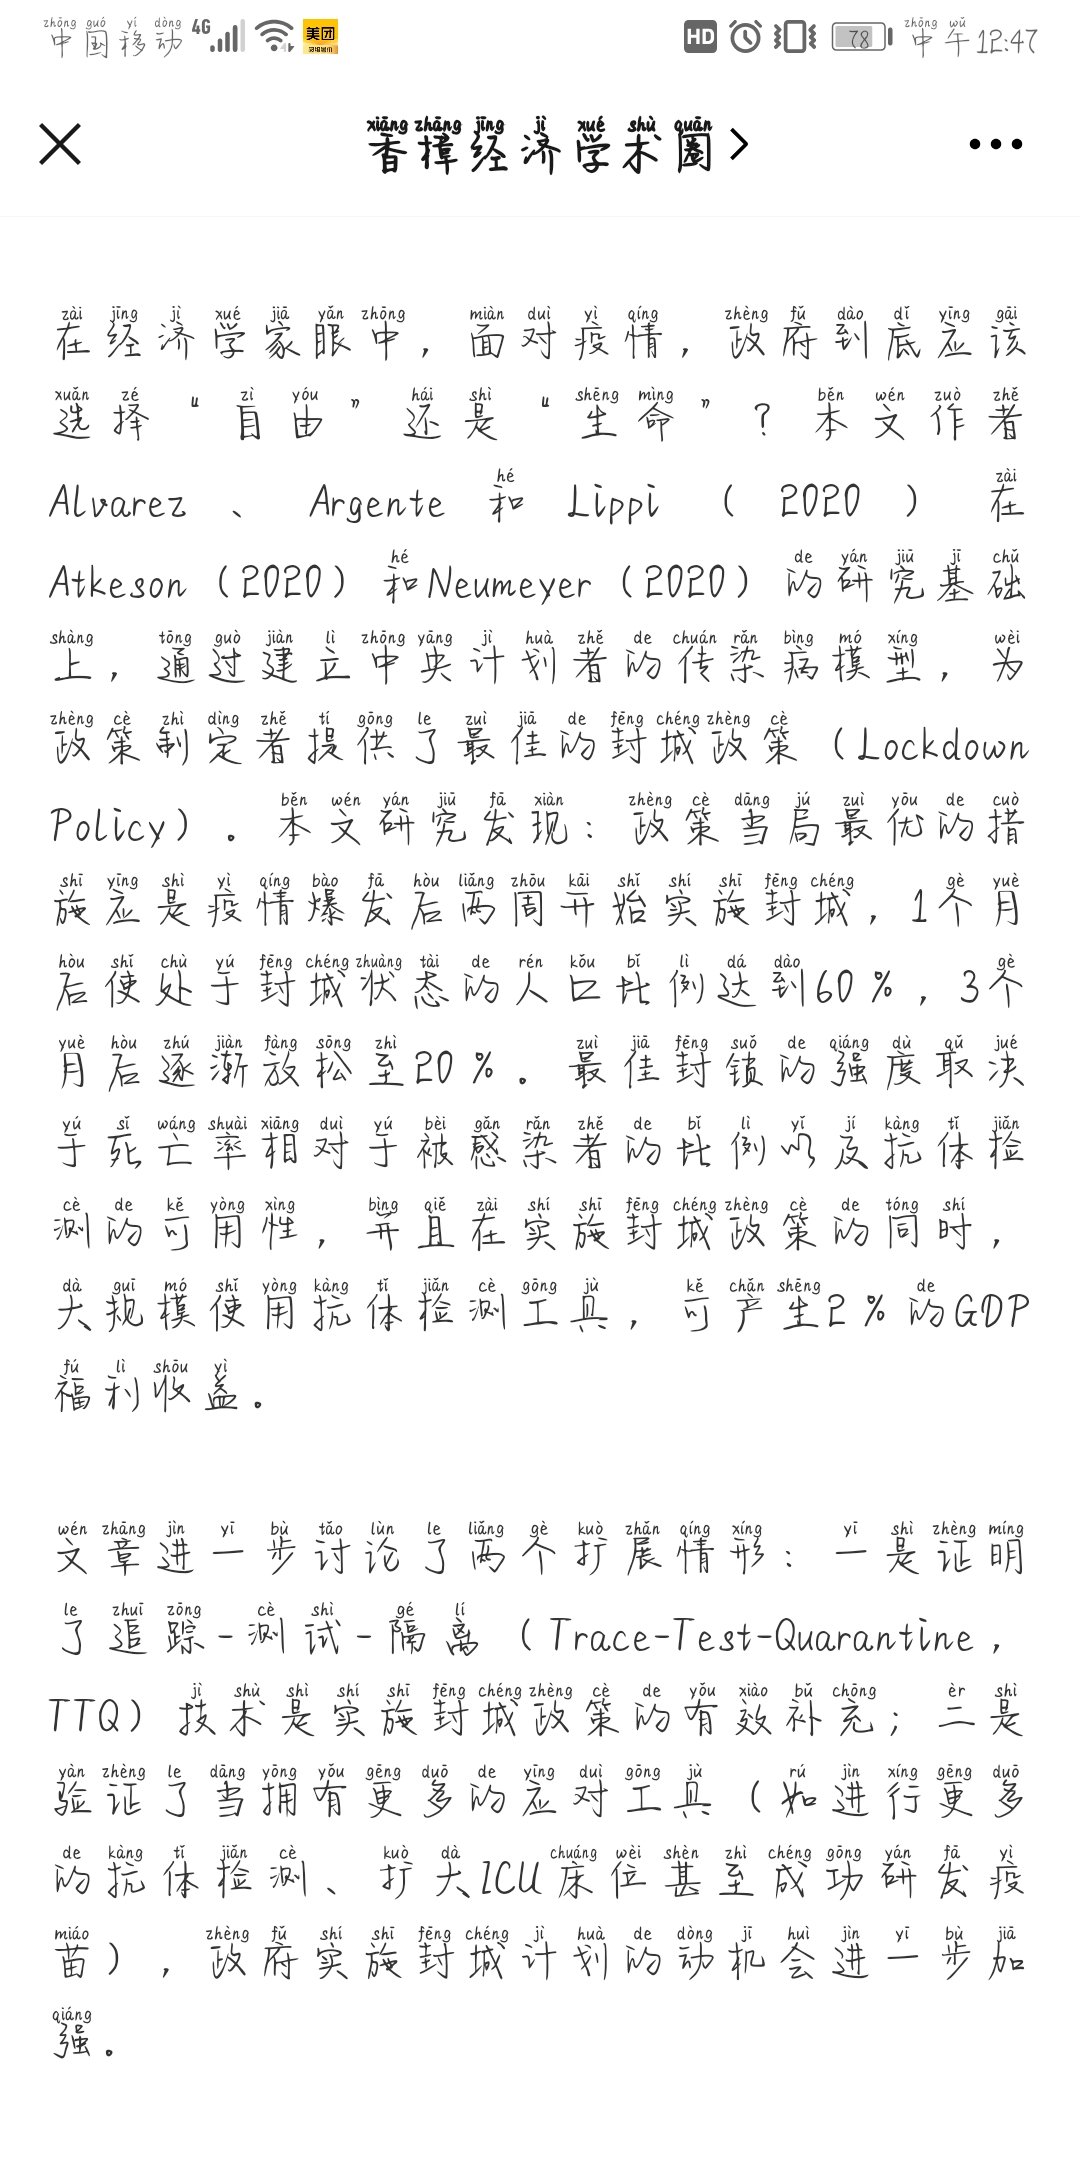 中国移动 4G 美团 HD 78 中午12:47
香樟经济学术圈
在经济学家眼中，面对疫情，政府到底应该
选择“自由”还是“生命”？本文作者
Alvarez、Argente和Lippi（2020）在
Atkeson（2020）和Neumeyer（2020）的研究基础
上，通过建立中央计划者的传染病模型，为
政策制定者提供了最佳的封城政策（Lockdown
Policy）。本文研究发现：政策当局最优的措
施应是疫情爆发后两周开始实施封城，1个月
后使处于封城状态的人口比例达到60%，3个
月后逐渐放松至20%。最佳封锁的强度取决
于死亡率相对于被感染者的比例以及抗体检
测的可用性，并且在实施封城政策的同时，
大规模使用抗体检测工具，可产生2%的GDP
福利收益。
文章进一步讨论了两个扩展情形：一是证明
了追踪-测试-隔离（Trace-Test-Quarantine，
TTQ）技术是实施封城政策的有效补充；二是
验证了当拥有更多的应对工具（如进行更多
的抗体检测、扩大ICU床位甚至成功研发疫
苗），政府实施封城计划的动机会进一步加
强。